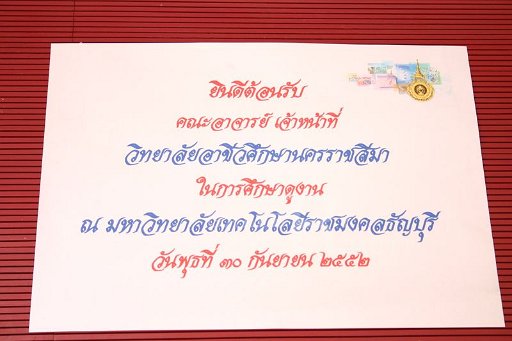 ยินดีต้อนรับ
คณะอาจารย์ เจ้าหน้าที่
วิทยาลัยอาชีวศึกษานครราชสีมา
ในการศึกษาดูงาน
ณ มหาวิทยาลัยเทคโนโลยีราชมงคลธัญบุรี
วันพุธที่ ๓๐ กันยายน ๒๕๕๒